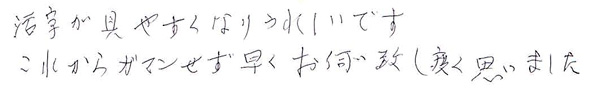 活字が見やすくなりうれしいです
これからガマンせず早くお伺い致し度く思いました